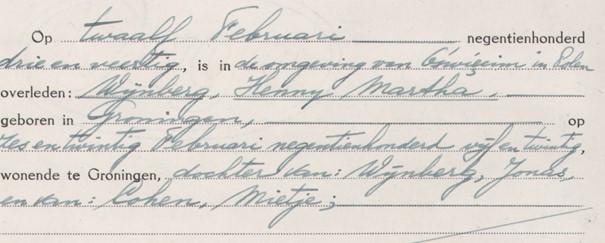 Op twaalf Februari negentienhonderd
drie en veertig, is in de omgeving van Oświęcim in Polen
overleden: Wijnberg, Henny Martha,
geboren in Groningen, op
zes en twintig Februari negentienhonderd vijf en twintig,
wonende te Groningen, dochter van: Wijnberg, Jonas,
en van: Cohen, Mietje;